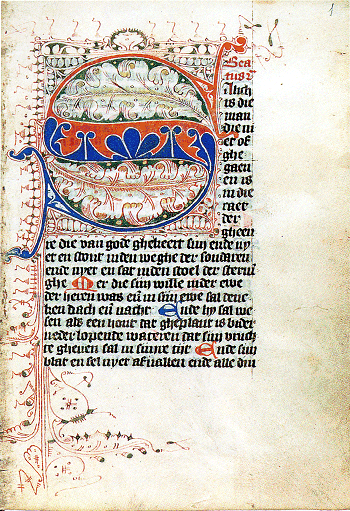 1
Beatus v
Alich
is die
man
die ni
et of
ghe
gaen
en is
in die
raet
der
gheen
re die van gode ghekeert sijn ende ny
et en stont inden weghe der sondaren
ende nyet en sat inden stoel der
ghe Mer die sijn wille inder ewe
der heren was eñ in sijn ewe sal denc
ken dach eñ nacht Ende hy sal we
sen als een hout dat gheplant is bider
neder lopende wateren dat sijn vruch
te gheuen sal in sinre tijt Ende sijn
blat en sel nyet afuallen ende alle din